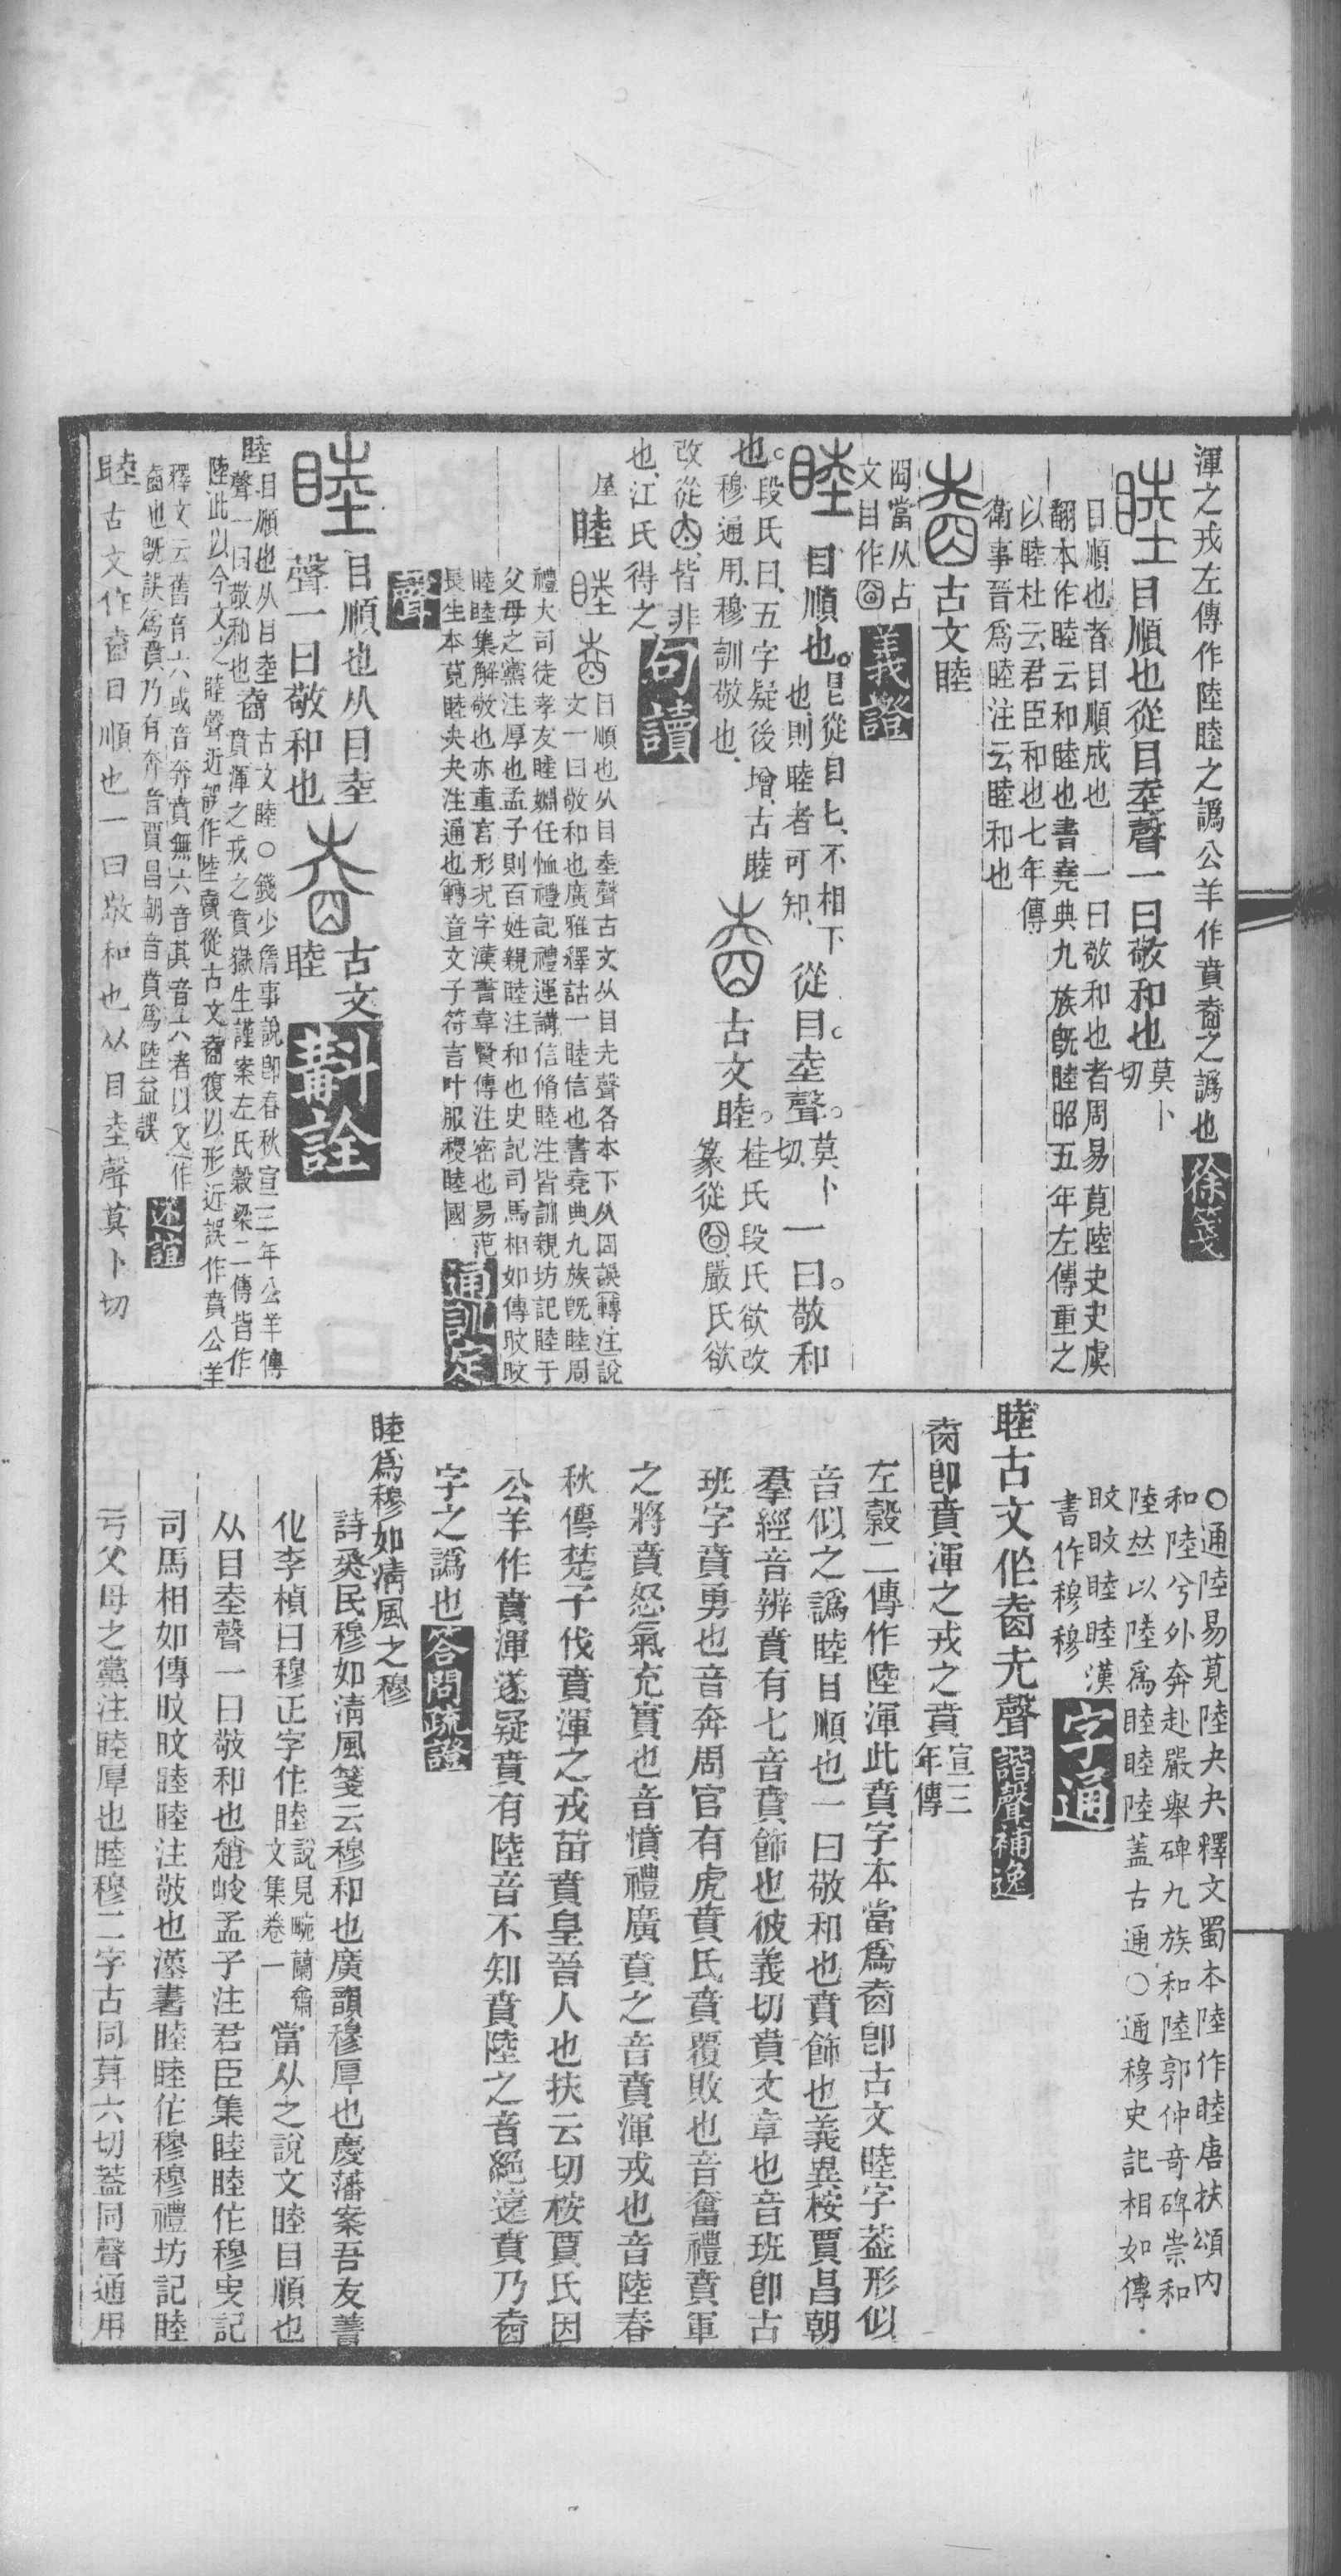 渾之戎左傳作陸睦之譌公羊作賁𡍬之譌也 徐箋
目順也從目坴聲一曰敬和也 莫卜
切
目順也者目順成也 一曰敬和也者周易莧陸史史虞
翻本作睦云和睦也書堯典九族旣睦昭五年左傳重之
以睦杜云君臣和也七年傳
衛事晉爲睦注云睦和也
古文睦
囧當从占
文目作
義證
目順也。
昆從目匕、不相下
也、則睦者可知、
從目坴聲。
莫卜
切、
一曰敬和
也。
段氏曰、五字疑後增、古睦
穆通用、穆訓敬也、
古文睦。
桂氏段氏欲改
篆從 嚴氏欲
改從 皆非
也、江氏得之 句讀
屋 睦
目順也从目坴聲古文从目圥聲各本下从囧誤轉注說
文一曰敬和也廣雅釋詁一睦信也書堯典九族旣睦周
禮大司徒孝友睦婣任恤禮記禮運講信脩睦注皆訓親坊記睦于
父母之黨注厚也孟子則百姓親睦注和也史記司馬相如傳旼旼
睦睦集解敬也亦重言形況字漢書韋賢傳注密也易范
長生本莧睦夬夬注通也轉音文子符言叶服稷睦國 通訓定
聲
目順也从目坴
聲一曰敬和也
古文
睦
斠詮
睦 目順也从目坴
聲一曰敬和也 古文睦○錢少詹事說卽春秋宣三年公羊傳
賁渾之戎之賁嶽生謹案左氏穀梁二傳皆作
陸此以今文之睦聲近誤作陸賣從古文𡍬復以形近誤作賁公羊
釋文云舊音六或音奔賁無六音其音六者以文作
𡍬也旣誤爲賁乃有奔音賈昌朝音賁爲陸益誤 述誼
睦古文作𡍬目順也一曰敬和也从目坴聲莫卜切
○通陸易莧陸夬夬釋文蜀本陸作睦唐扶頌內
和陸兮外奔赴嚴舉碑九族和陸郭仲奇碑崇和
陸竝以陸爲睦睦陸蓋古通○通穆史記相如傳
旼旼睦睦漢
書作穆穆 字通
睦古文作𡍬圥聲 諧聲補逸
𡍬卽賁渾之戎之賁 宣三
年傳
左穀二傳作陸渾此賁字本當爲𡍬卽古文睦字葢形似
音似之譌睦目順也一曰敬和也賁飾也義異桉賈昌朝
羣經音辨賁有七音賁飾也彼義切賁文章也音班卽古
班字賁勇也音奔周官有虎賁氏賁覆敗也音奮禮賁軍
之將賁怒氣充實也音憤禮廣賁之音賁渾戎也音陸春
秋傳楚子伐賁渾之戎苗賁皇晉人也扶云切桉賈氏因
公羊作賁渾遂疑賁有陸音不知賁陸之音絕遠賁乃𡍬
字之譌也 答問疏證
睦爲穆如清風之穆
詩烝民穆如清風箋云穆和也廣韻穆厚也慶藩案吾友善
化李楨曰穆正字作睦 說見畹蘭齋
文集卷一 當从之說文睦目順也
从目坴聲一曰敬和也趙岐孟子注君臣集睦睦作穆史記
司馬相如傳旼旼睦睦注敬也漢書睦睦作穆穆禮坊記睦
亏父母之黨注睦厚也睦穆二字古同莫六切蓋同聲通用